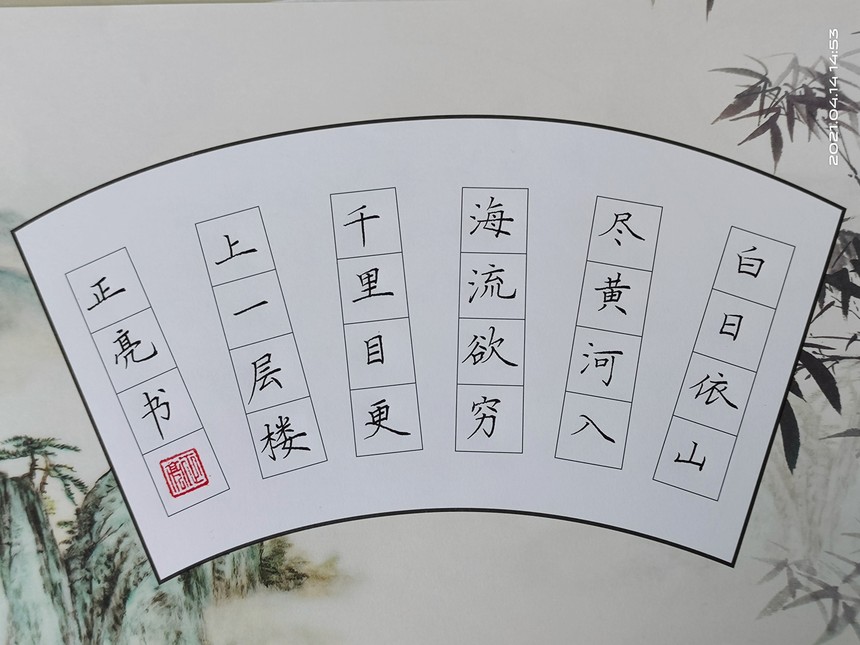 白日依山
尽黄河入
海流欲穷
千里目更
上一层楼
正亮书
2021.04.14 14:53